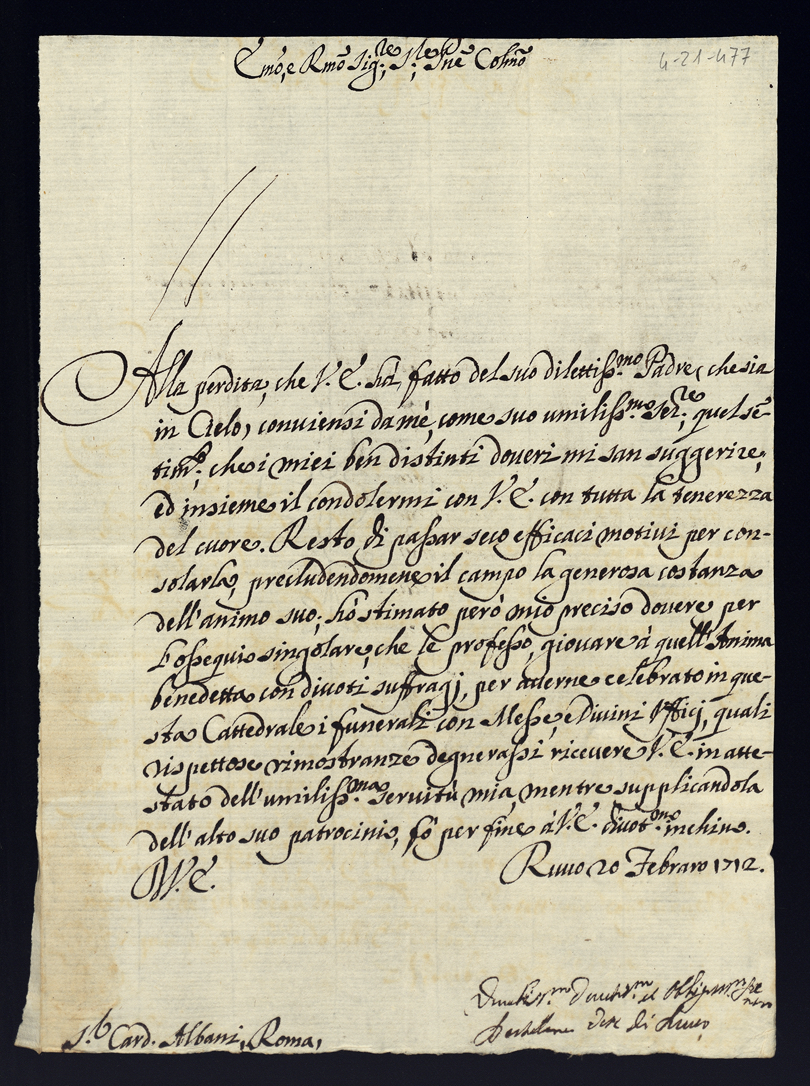 Emõ, e Rmõ Sig.re, S.re Pñe Colmõ
4-21-477
Alla perdita, che V.E. hà fatto del suo dilettiss.mo Padre, che sia
in Cielo, conviensi da mè, come suo umiliss.mo Ser.re, quel sẽ-
tim.to, che i miei ben distinti doveri mi san suggerire,
ed insieme il condolermi con V.E. con tutta la tenerezza
del cuore. Resto di passar seco efficaci motivi per con-
solarla, precludendomene il campo la generosa costanza
dell'animo suo; hò stimato però mio preciso dovere per
l'ossequio singolare, che le professo, giovare à quell'Anima
benedetta con divoti suffragj, per averne celebrato in que-
sta Cattedrale i funerali con Messe, e Divini Vffici, quali
rispettose rimostranze degnerassi ricevere V.E. in atte-
stato dell'umiliss.ma servitù mia, mentre supplicandola
dell'alto suo patrocinio, fò per fine à V.E. divot.mo inchino.
Di V.E.
Ruvo 20 Febraro 1712.
S.r Card. Albani, Roma,
di Ruvo